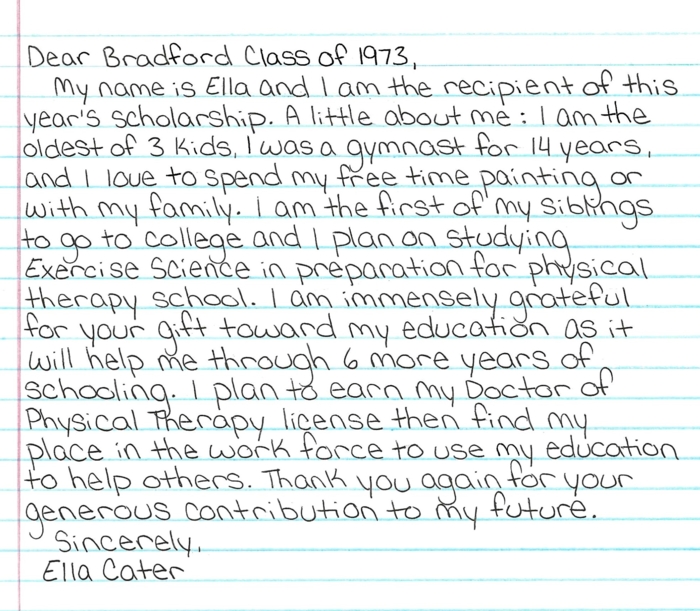 Dear Bradford Class of 1973,
My name is Ella and I am the recipient of this
year's scholarship. A little about me: I am the
oldest of 3 kids, I was a gymnast for 14 years,
and I love to spend my free time painting or
with my family. I am the first of my siblings
to go to college and I plan on studying
Exercise Science in preparation for physical
therapy school. I am immensely grateful
for your gift toward my education as it
will help me through 6 more years of
schooling. I plan to earn my Doctor of
Physical Therapy license then find my
place in the work force to use my education
to help others. Thank you again for your
generous contribution to my future.
Sincerely,
Ella Cater